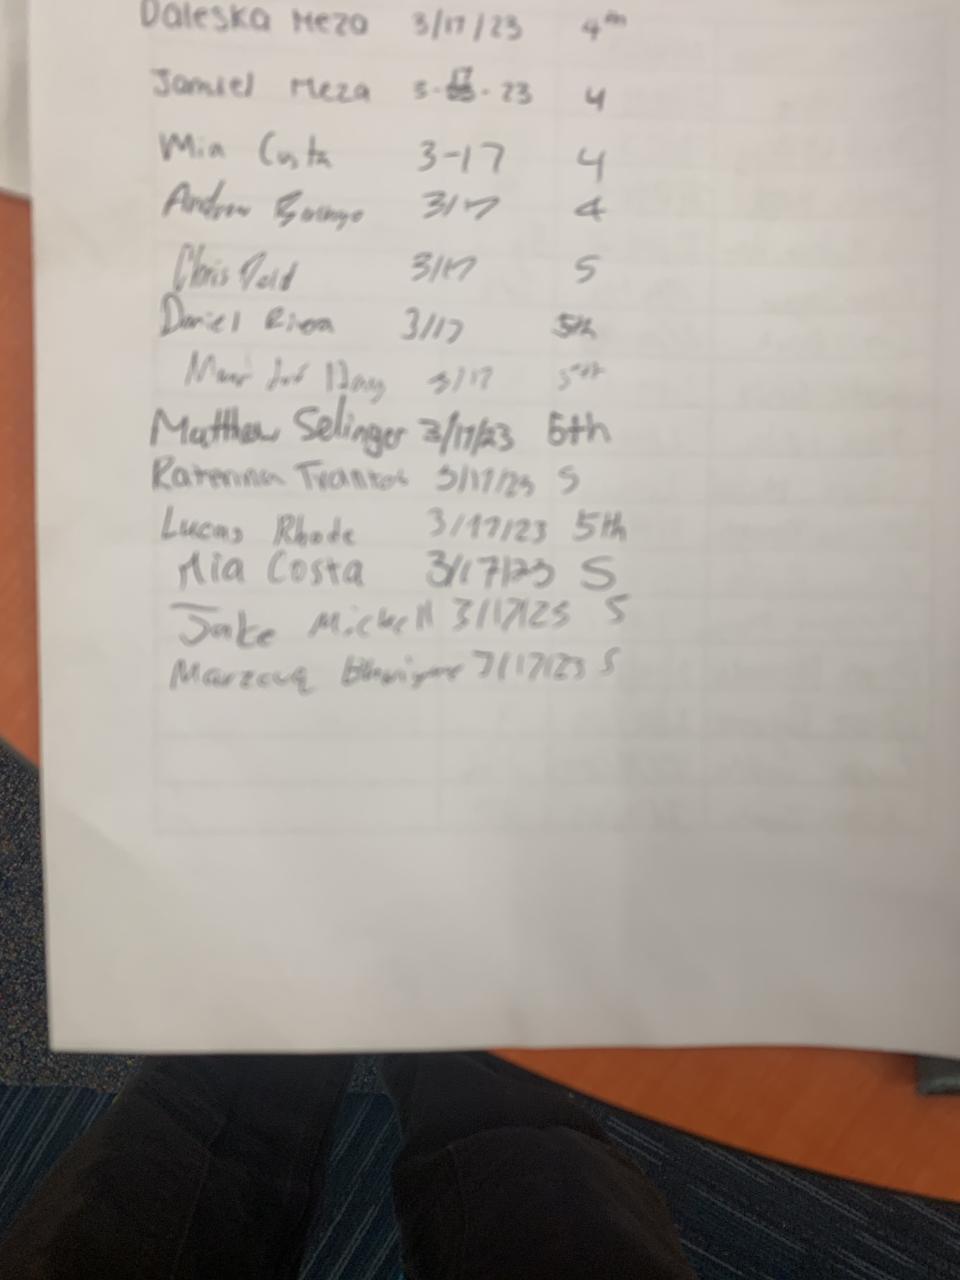 Daleska Meza 3/17/23 4th
Jamiel Meza 3-17-23 4
Mia Costa 3-17 4
Andrew 3/17 4
Chris 3/17 5
Daniel Rivera 3/17 5th
3/17 5th
Matthew Selinger 3/17/23 5th
Katerina 3/17/23 5
Lucas Rhode 3/17/23 5th
Mia Costa 3/17/23 5
Jake Michell 3/17/23 5
Marzouq 3/17/23 5